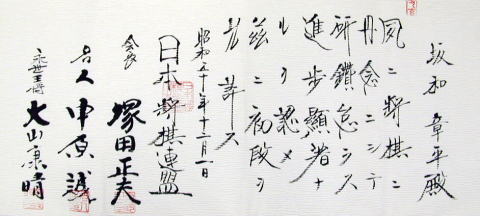 坂和章平殿
夙ニ将棋ニ
丹念ニシテ
研鑽怠ラス
進歩顕著ナ
ルヲ認メ
茲ニ初段ヲ
免許ス
昭和五十年十二月一日
日本将棋連盟
会長 塚田正夫
名人 中原誠
永世王将 大山康晴